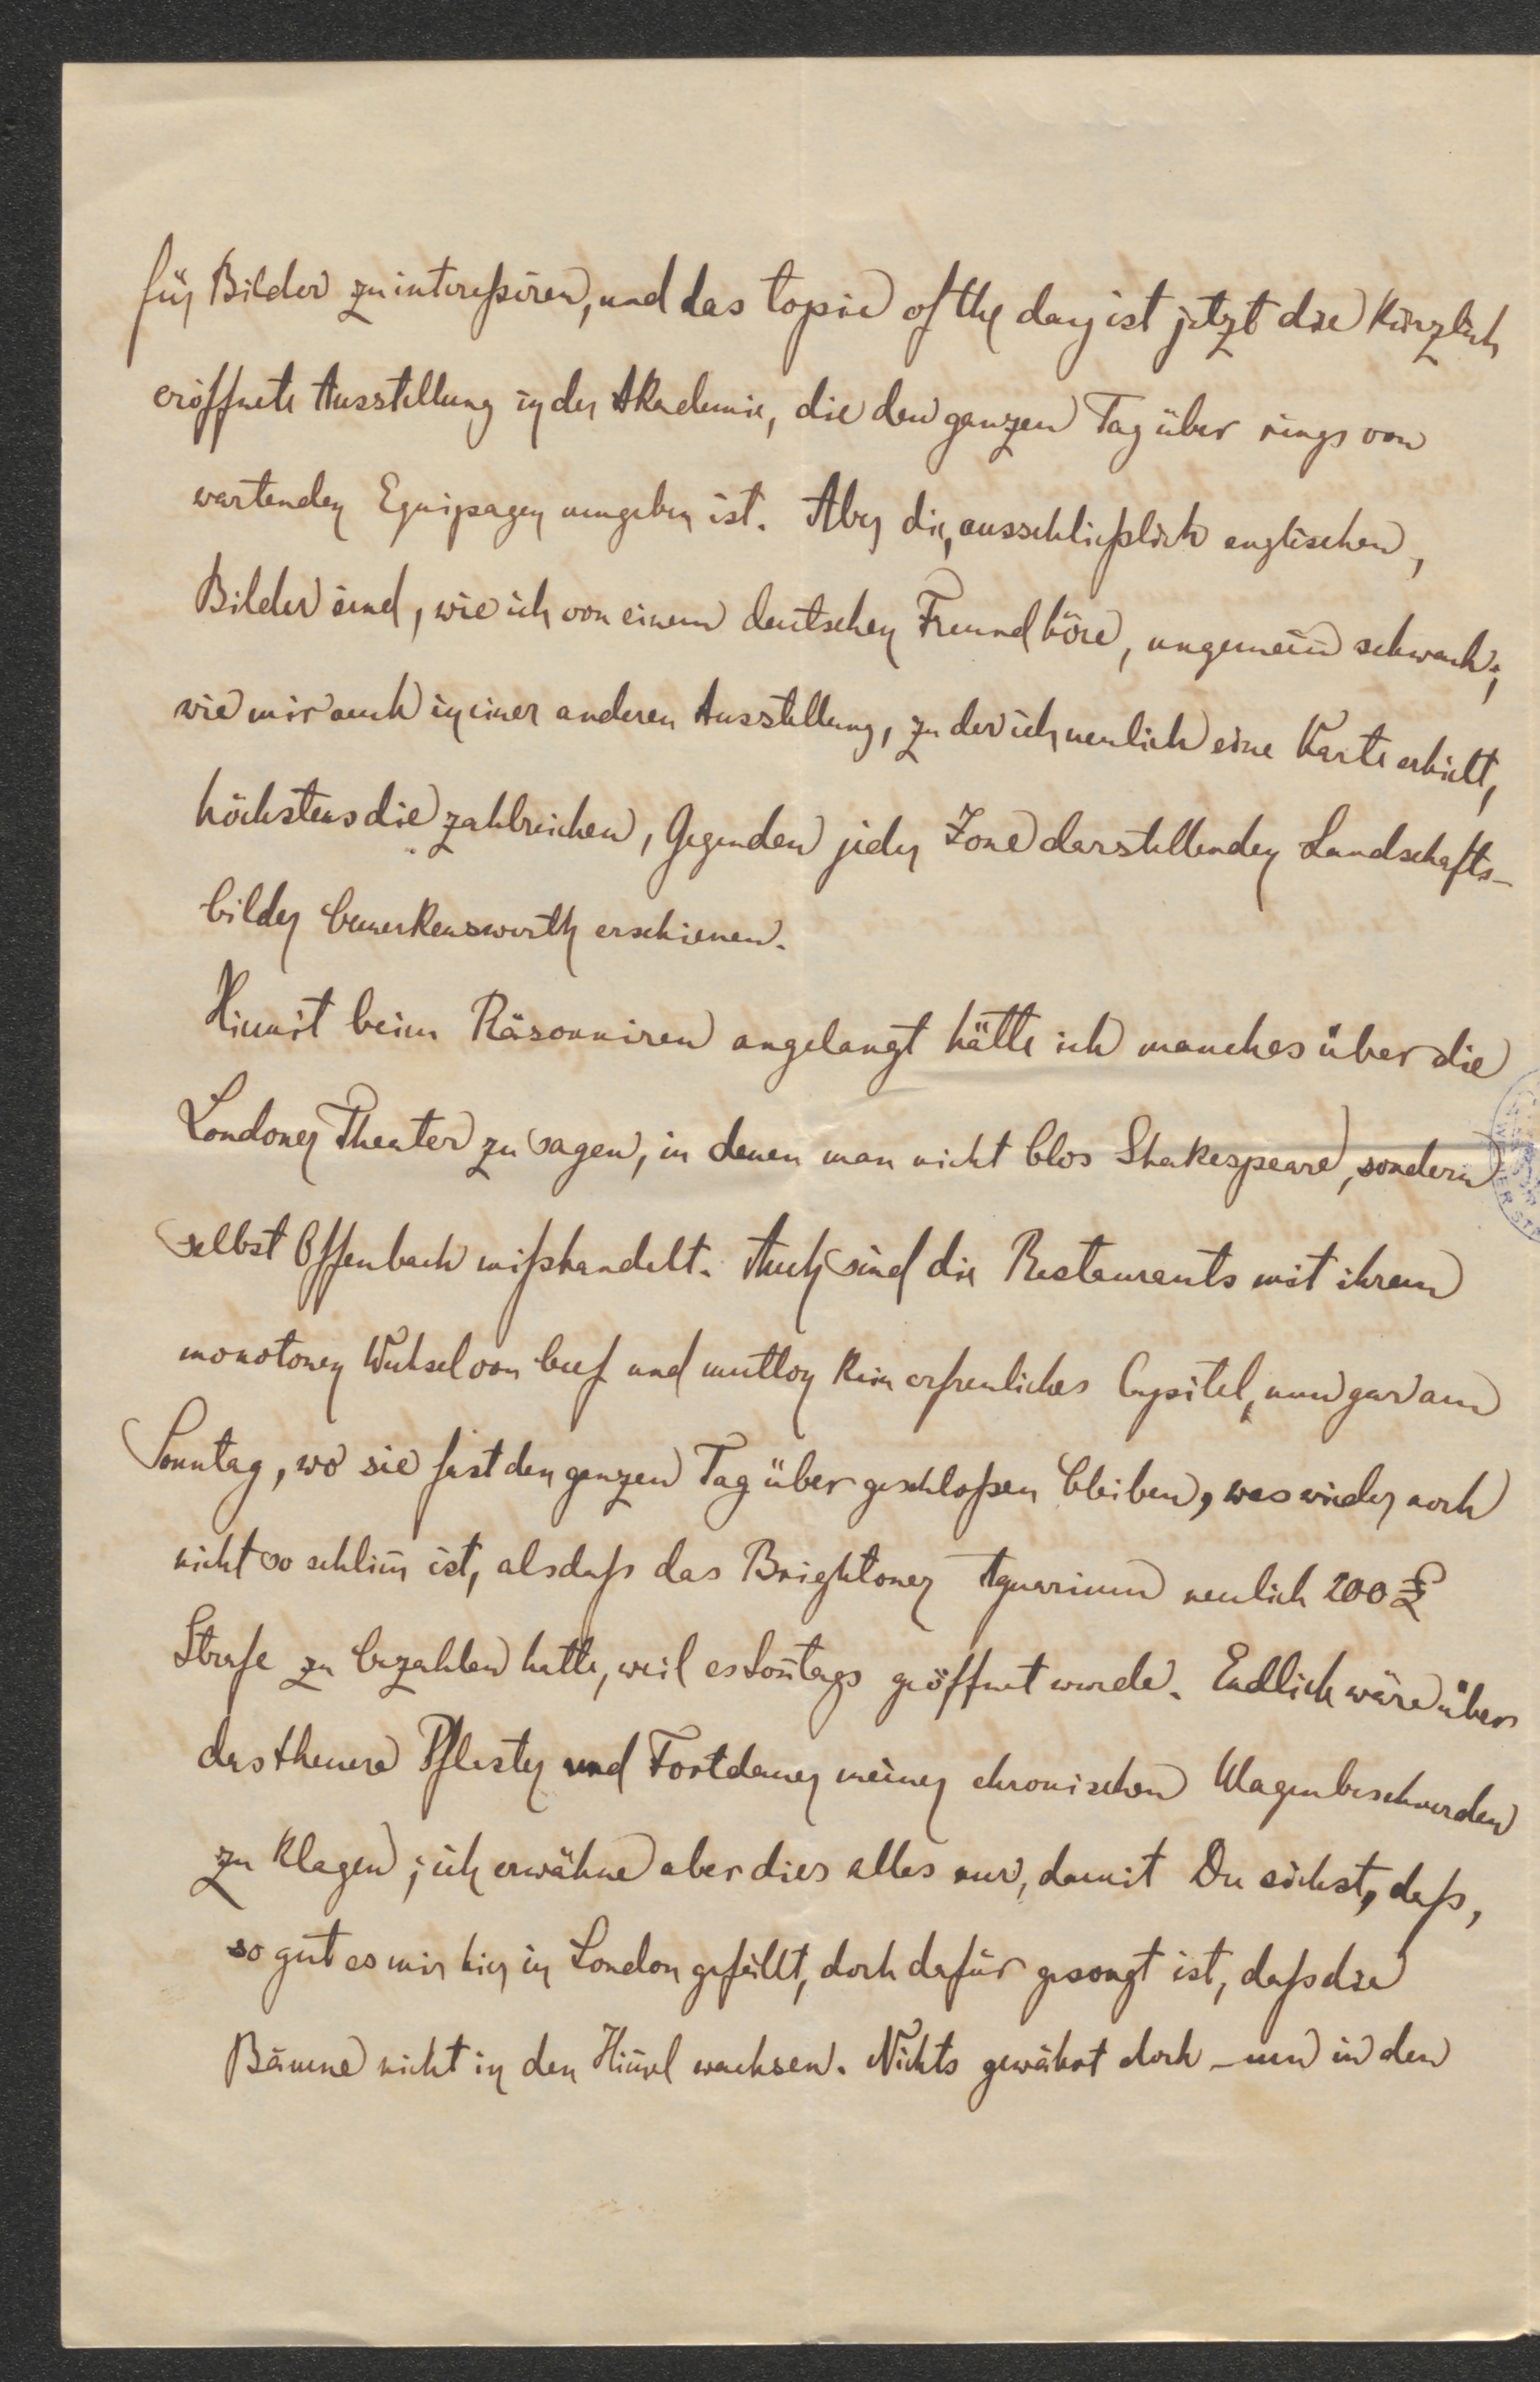 für Bilder zu interessiren, und das topic of the day ist jetzt die kürzlich
eröffnete Ausstellung in der Akademie, die den ganzen Tag über rings von
wartenden Equipagen umgeben ist. Aber die, ausschließlich englischen,
Bilder sind, wie ich von einem deutschen Freund höre, ungemein schwach;
wie mir auch in einer anderen Ausstellung, zu der ich neulich eine Karte erhielt,
höchstens die zahlreichen, Gegenden jeder Zone darstellenden Landschafts-
bilder bemerkenswerth erschienen.
Hiemit beim Räsonniren angelangt hätte ich manches über die
Londoner Theater zu sagen, in denen man nicht blos Shakespeare, sondern
selbst Offenbach mißhandelt. Auch sind die Restaurants mit ihrem
monotonen Wechsel von beef und mutton kein erfreuliches Capitel, nun gar am
Sonntag, wo sie fast den ganzen Tag über geschloßen bleiben, was wieder noch
nicht so schlim̄ ist, als daß das Brightoner Aquarium neulich 200 £
Strafe zu bezahlen hatte, weil es Son̄tags geöffnet wurde. Endlich wäre über
das theuere Pflaster und Fortdauer meiner chronischen Magenbeschwerden
zu klagen; ich erwähne aber dies alles nur, damit Du siehst, daß,
so gut es mir hier in London gefällt, doch dafür gesorgt ist, daß die
Bäume nicht in den Him̄el wachsen. Nichts gewährt doch – um in den